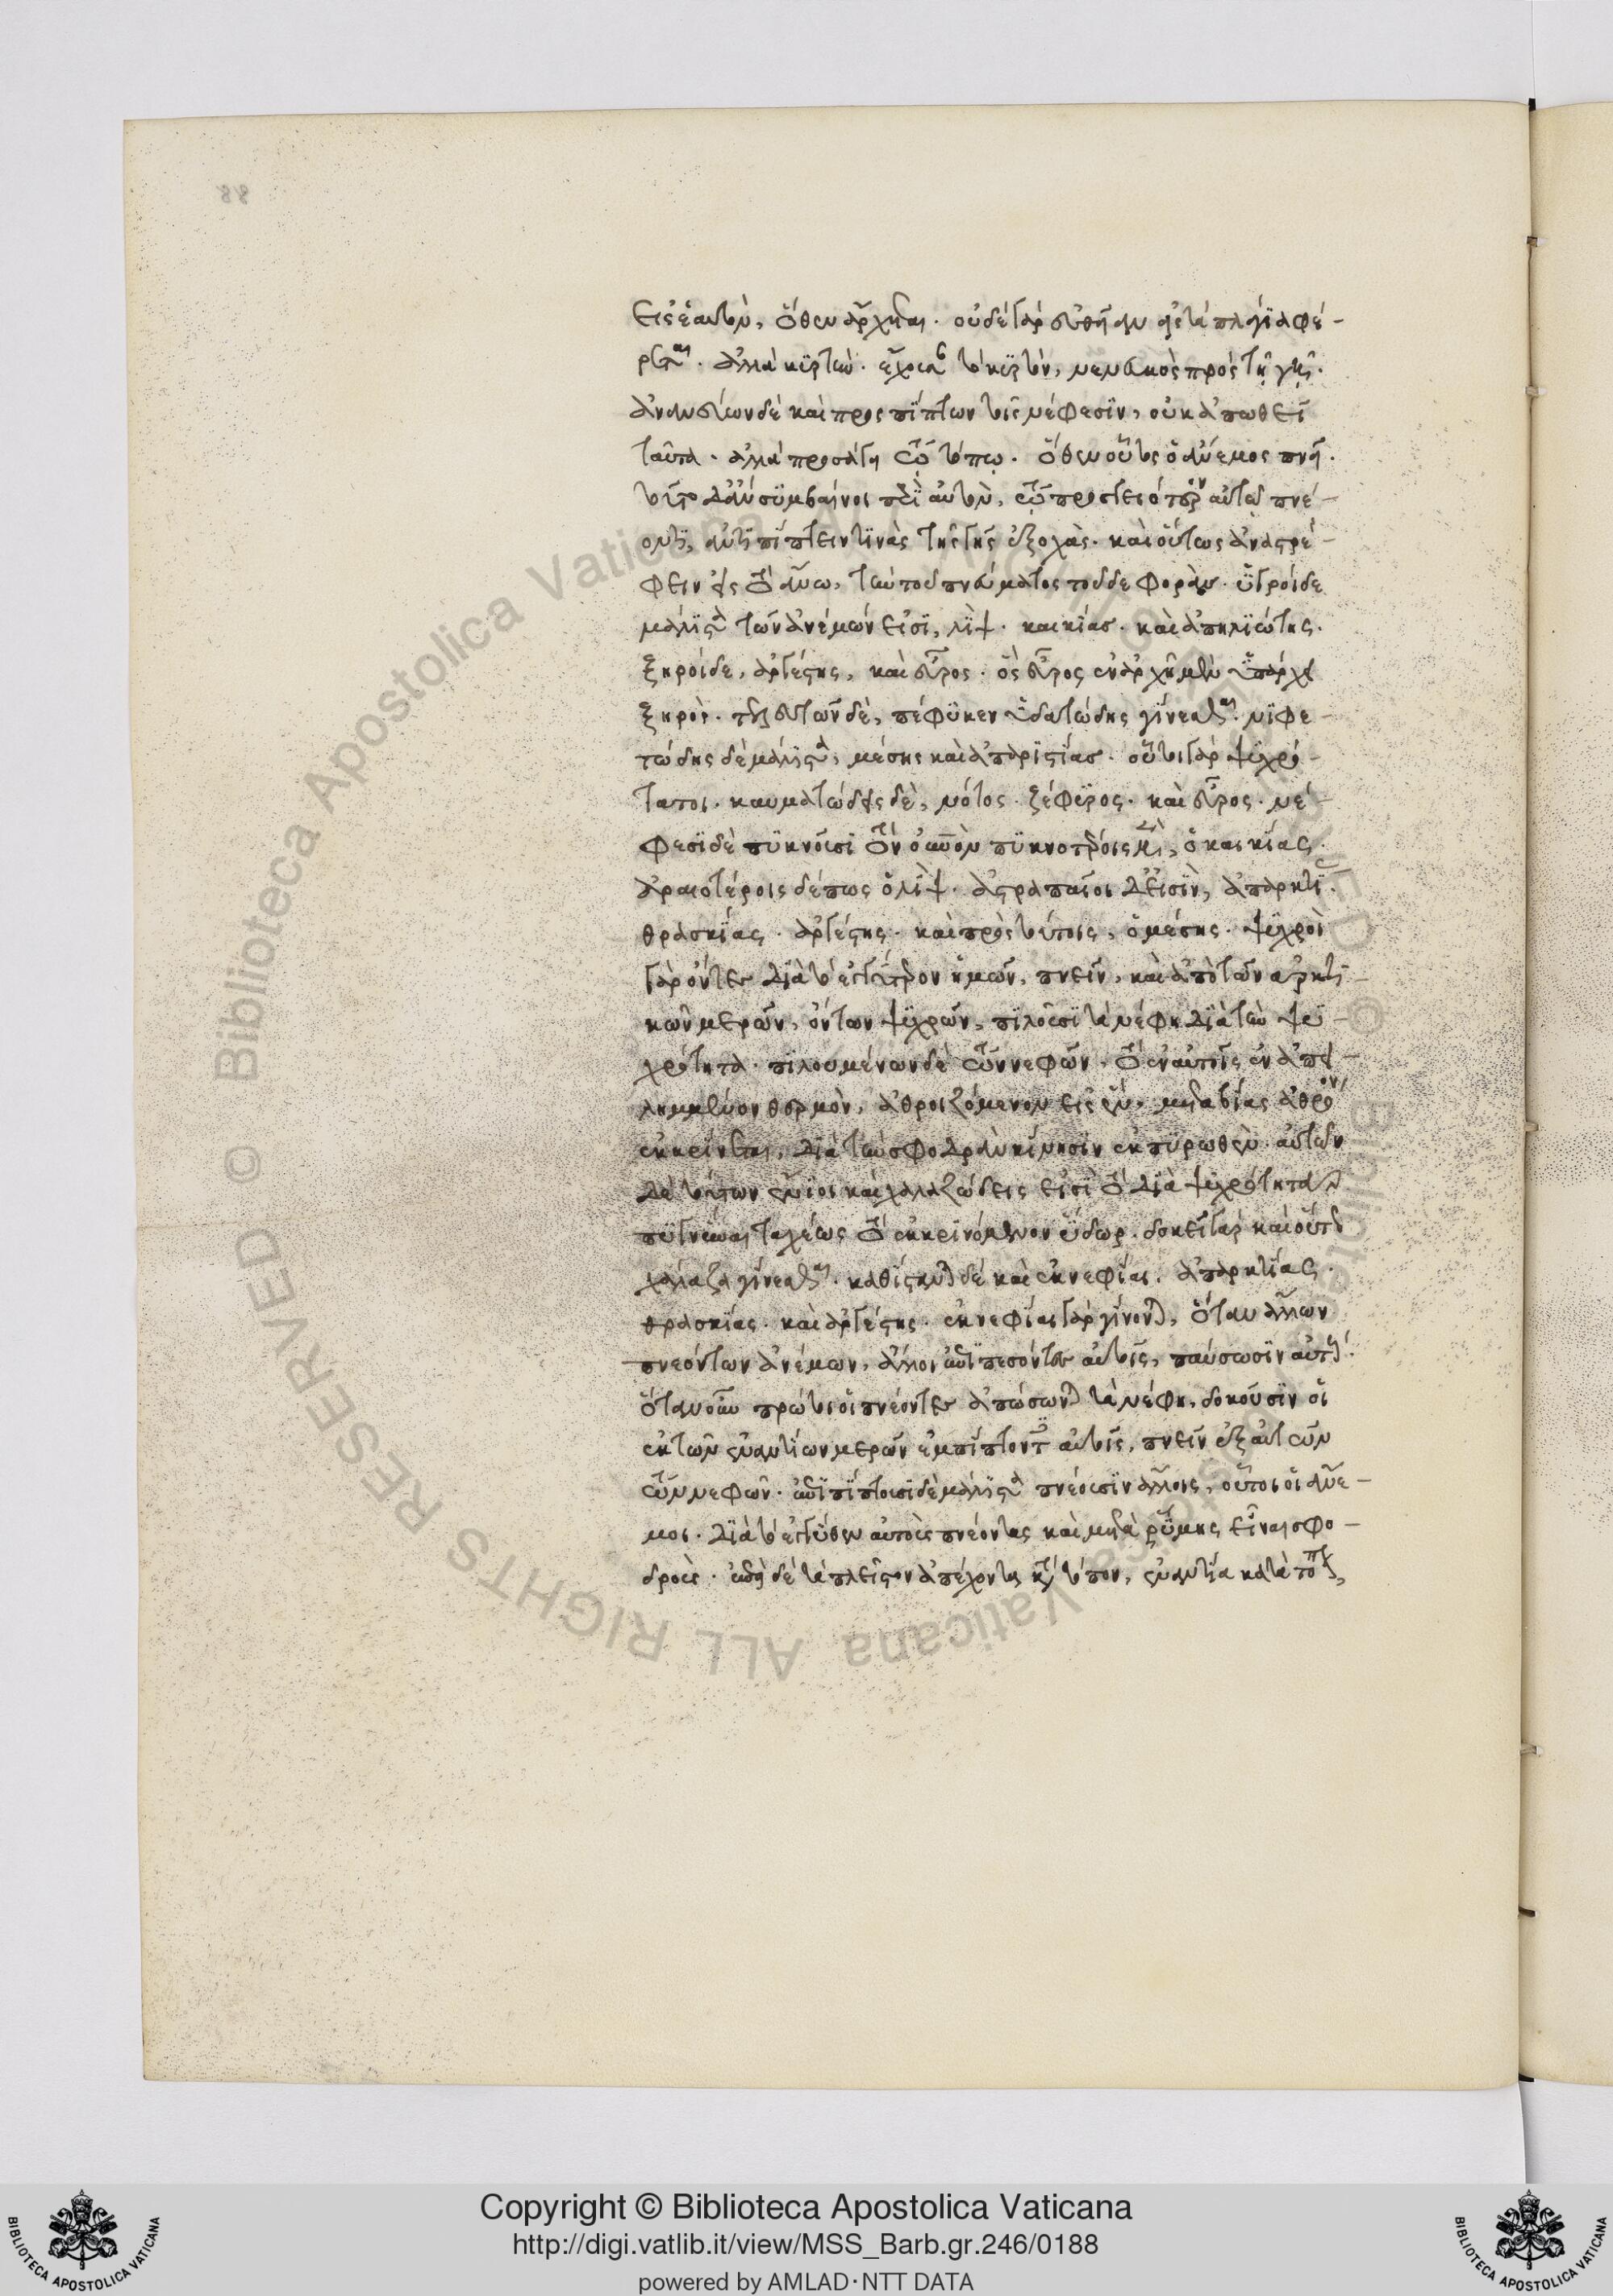 88
εἰς ἑαυτὸν, ὅθεν ἄρχεται. οὐδὲ γὰρ εὐθεῖαν ἢ εἰς τὰ πλάγια φέ-
ρεται. ἀλλὰ κυρτὴν. ἔχει τὸ κυρτὸν, νενευκὸς πρὸς τῇ γῇ.
ἀναπλέων δὲ καὶ προσπίπτων τοῖς νέφεσιν, οὐκ ἀπωθεῖ
ταῦτα. ἀλλὰ προσάγει τῷ τόπῳ. ὅθεν οὗτος ὁ ἄνεμος πνεῖ.
τοῦτο δ' ἂν συμβαίνοι περὶ αὐτὸν, τῷ προσγειότερον αὐτῷ πνέ-
οντι, ἀντιπίπτειν τινὰς τῆς γῆς ἐξοχὰς. καὶ οὕτως ἀναστρέ-
φειν εἰς τὸ ἄνω, τὴν τοῦ πνεύματος τοῦδε φορὰν. ὑγροὶ δὲ
μάλιστα τῶν ἀνέμων εἰσὶ, λὶψ. καικίας. καὶ ἀπηλιώτης.
ξηροὶ δὲ, ἀργέστης, καὶ εὖρος. ὃς εὖρος ἐν ἀρχῇ μὲν ὑπάρχει
ξηρὸς. τελευτῶν δὲ, πέφυκεν ὑδατώδης γίνεσθαι. νιφε-
τώδης δὲ μάλιστα, μέσης καὶ ἀπαρκτίας. οὗτοι γὰρ ψυχρό-
τατοι. καυματώδεις δὲ, νότος. ζέφυρος. καὶ εὖρος. νέ-
φεσι δὲ πυκνοῦσι τὸν οὐρανὸν πυκνοτέροις μὲν, ὁ καικίας.
ἀραιοτέροις δέ πως ὁ λίψ. ἀστραπαῖοι δ' εἰσὶν, ἀπαρκτί.
θρασκίας. ἀργέστης. καὶ πρὸς τούτοις, ὁ μέσης. ψυχροὶ
γὰρ ὄντες διὰ τὸ ἐγγύτερον ἡμῶν, πνεῖν, καὶ ἀπὸ τῶν ἀρκτι-
κῶν μερῶν, ὄντων ψυχρῶν, πιλοῦσι τὰ νέφη διὰ τὴν ψυ-
χρότητα. πιλουμένων δὲ τῶν νεφῶν. τὸ ἐν αὐτοῖς ἐναπει-
λημμένον θερμὸν, ἀθροιζόμενον εἰς ἓν, μετὰ βίας ἀθρόον
ἐκκρίνεται, διὰ τὴν σφοδρὰν κίνησιν ἐκπυρωθὲν. αὐτῶν
δὲ τούτων ἔνιοι καὶ χαλαζώδεις εἰσὶ τῷ διὰ ψυχρότητα
πηγνύναι ταχέως τὸ ἐκκρινόμενον ὕδωρ. δοκεῖ γὰρ καὶ οὕτω
χάλαζα γίνεσθαι. καθίστανται δὲ καὶ ἐκνεφίαι. ἀπαρκτίας.
θρασκίας. καὶ ἀργέστης. ἐκνεφίαι γὰρ γίνονται, ὅταν ἄλλων
πνεόντων ἀνέμων, ἄλλοι ἀντιπεσόντες αὐτοῖς, παύσωσιν αὐτούς.
ὅταν οὖν πρῶτοι οἱ πνέοντες ἀπώσωνται τὰ νέφη, δοκοῦσιν οἱ
ἐκ τῶν ἐναντίων μερῶν ἐμπίπτοντες αὐτοῖς, πνεῖν ἐξ αὐτῶν
τῶν νεφῶν. ἀντιπίπτουσι δὲ μάλιστα πνέουσιν ἄλλοις, οὗτοι οἱ ἄνε-
μοι. διὰ τὸ ἐγγύθεν αὐτοὺς πνέοντας καὶ μετὰ ῥύμης εἶναι σφο-
δροὺς. ἐπεὶ δὲ τὰ πλεῖστον ἀπέχοντα κατὰ τόπον, ἐναντία κατὰ τόπον,
Copyright © Biblioteca Apostolica Vaticana
http://digi.vatlib.it/view/MSS_Barb.gr.246/0188
powered by AMLAD·NTT DATA
BIBLIOTECA APOSTOLICA VATICANA
BIBLIOTECA APOSTOLICA VATICANA
© Biblioteca Apostolica Vaticana ALL RIGHTS RESERVED